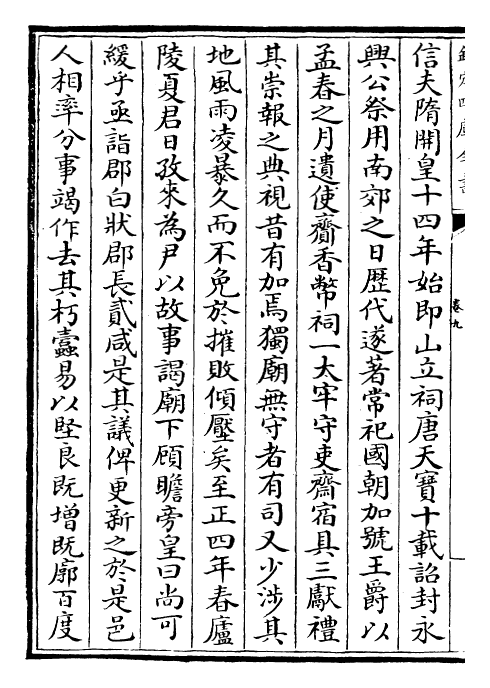 欽定四庫全書
卷九
信夫隋開皇十四年始即山立祠唐天寶十載詔封永
興公祭用南郊之日歴代遂著常祀國朝加號王爵以
孟春之月遣使齎香幣祠一太牢守吏齋宿具三獻禮
其崇報之典視昔有加焉獨廟無守者有司又少涉其
地風雨凌暴久而不免於摧敗傾壓矣至正四年春廬
陵夏君日孜來為尹以故事謁廟下顧瞻旁皇曰尚可
緩乎亟詣郡白狀郡長貳咸是其議俾更新之於是邑
人相率分事竭作去其朽蠧易以堅良既增既廓百度